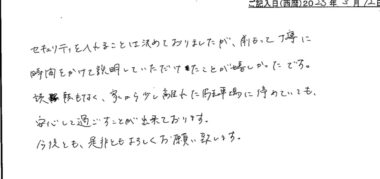 ご記入日(西暦)20 年 月 日
セキュリティを入れることは決めておりましたが、前もって丁寧に
時間をかけて説明していただけたことが嬉しかったです。
もなく、家から少し離れた駐車場に停めていても、
安心して過ごすことが出来ております。
今後とも、是非ともよろしくお願い致します。